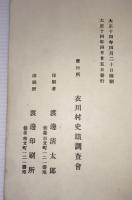 大正十四年四月二十日印刷
大正十四年四月廿五日發行
發行所
衣川村史蹟調査會
印刷者
渡邊清太郎
印刷所
渡邊印刷所